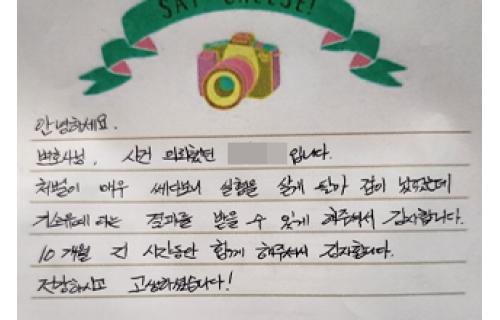 SAY CHEESE!
안녕하세요.
변호사님, 사건 의뢰했던 입니다.
처벌이 매우 쎄다보니 실형을 살게 될까 겁이 났었는데
기소유예 라는 결과를 받을 수 있게 해주셔서 감사합니다.
10개월 긴 시간동안 함께 해주셔서 감사합니다.
건강하시고 고생하셨습니다!